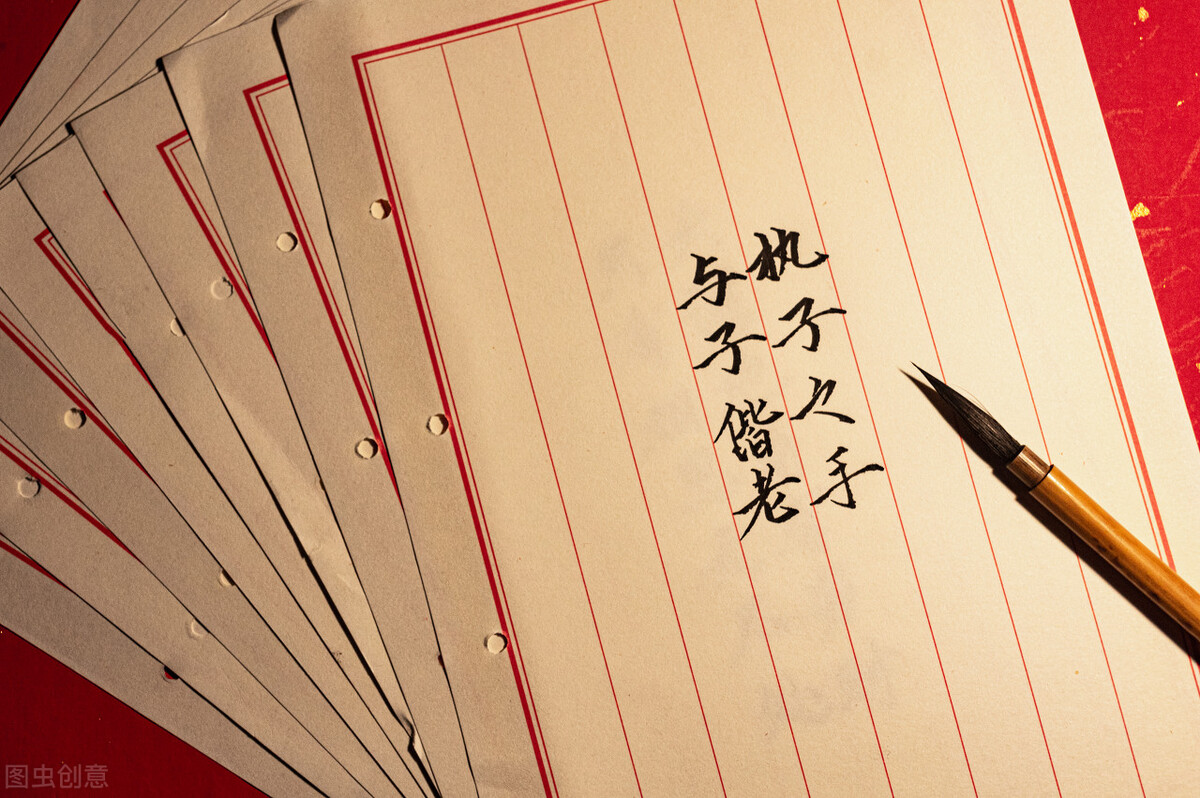 执子之手
与子偕老
图虫创意